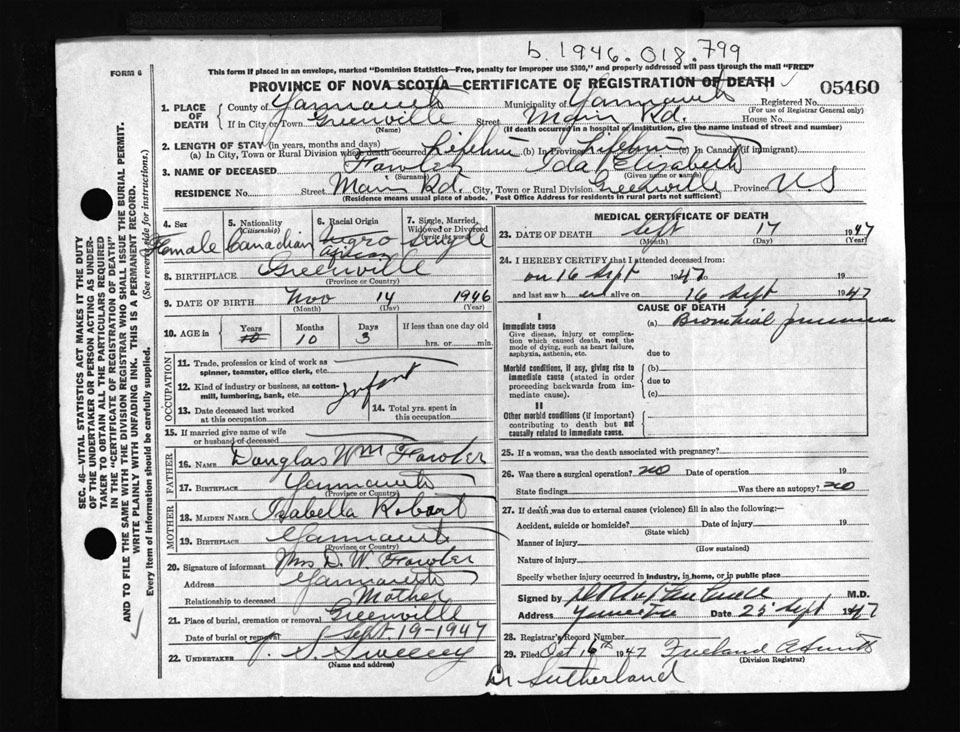 b. 1946.018.799
FORM 6
This form if placed in an envelope, marked "Dominion Statistics—Free, penalty for improper use $300," and properly addressed will pass through the mail "FREE"
PROVINCE OF NOVA SCOTIA—CERTIFICATE OF REGISTRATION OF DEATH
05460
1. PLACE OF DEATH County of Yarmouth Municipality of Yarmouth Registered No.
(For use of Registrar General only)
If in City or Town Greenville Street Main Rd. House No.
(Name) (If death occurred in a hospital or institution, give the name instead of street and number)
2. LENGTH OF STAY (in years, months and days)
(a) In City, Town or Rural Division where death occurred Lifetime (b) In Province Lifetime (c) In Canada (if immigrant)
3. NAME OF DECEASED Fowler Ida Elizabeth
(Surname) (Given name or names)
RESIDENCE No. Street Main Rd. City, Town or Rural Division Greenville Province NS
(Residence means usual place of abode. Post Office Address for residents in rural parts not sufficient)
4. Sex 5. Nationality (Citizenship) 6. Racial Origin 7. Single, Married, Widowed or Divorced (write the word)
Female Canadian Negro African Single
8. BIRTHPLACE Greenville
(Province or Country)
9. DATE OF BIRTH Nov 14 1946
(Month) (Day) (Year)
10. AGE in Years Months Days If less than one day old
10 10 3 hrs. or min.
OCCUPATION
11. Trade, profession or kind of work as spinner, teamster, office clerk, etc.
12. Kind of industry or business, as cotton-mill, lumbering, bank, etc.
Infant
13. Date deceased last worked at this occupation
14. Total yrs. spent in this occupation
15. If married give name of wife or husband of deceased
FATHER
16. NAME Douglas Wm Fowler
17. BIRTHPLACE Yarmouth
(Province or Country)
MOTHER
18. MAIDEN NAME Isabella Robart
19. BIRTHPLACE Yarmouth
(Province or Country)
20. Signature of informant Mrs D. W. Fowler
Address Yarmouth
Relationship to deceased Mother
21. Place of burial, cremation or removal Greenville
Date of burial or removal Sept. 19-1947
22. UNDERTAKER J. S. Sweeney
(Name and address)
MEDICAL CERTIFICATE OF DEATH
23. DATE OF DEATH Sept 17 1947
(Month) (Day) (Year)
24. I HEREBY CERTIFY that I attended deceased from:
on 16 Sept 1947 to 19
and last saw her alive on 16 Sept 1947
CAUSE OF DEATH
I
Immediate cause
Give disease, injury or complication which caused death, not the mode of dying, such as heart failure, asphyxia, asthenia, etc.
(a) Bronchial pneumonia
due to
Morbid conditions, if any, giving rise to immediate cause (stated in order proceeding backwards from immediate cause).
(b)
due to
(c)
II
Other morbid conditions (if important) contributing to death but not causally related to immediate cause.
25. If a woman, was the death associated with pregnancy?
26. Was there a surgical operation? no Date of operation 19
State findings Was there an autopsy? no
27. If death was due to external causes (violence) fill in also the following:—
Accident, suicide or homicide? Date of injury 19
(State which)
Manner of injury
(How sustained)
Nature of injury
Specify whether injury occurred in industry, in home, or in public place
Signed by M.D.
Address Date 25 Sept 1947
28. Registrar's Record Number
29. Filed Oct 16th 1947
(Division Registrar)
Dr Sutherland
SEC. 46—VITAL STATISTICS ACT MAKES IT THE DUTY
OF THE UNDERTAKER OR PERSON ACTING AS UNDER-
TAKER TO OBTAIN ALL THE PARTICULARS REQUIRED
IN THE "CERTIFICATE OF REGISTRATION OF DEATH"
AND TO FILE THE SAME WITH THE DIVISION REGISTRAR WHO SHALL ISSUE THE BURIAL PERMIT.
WRITE PLAINLY WITH UNFADING INK. THIS IS A PERMANENT RECORD.
Every item of information should be carefully supplied. (See reverse side for instructions.)